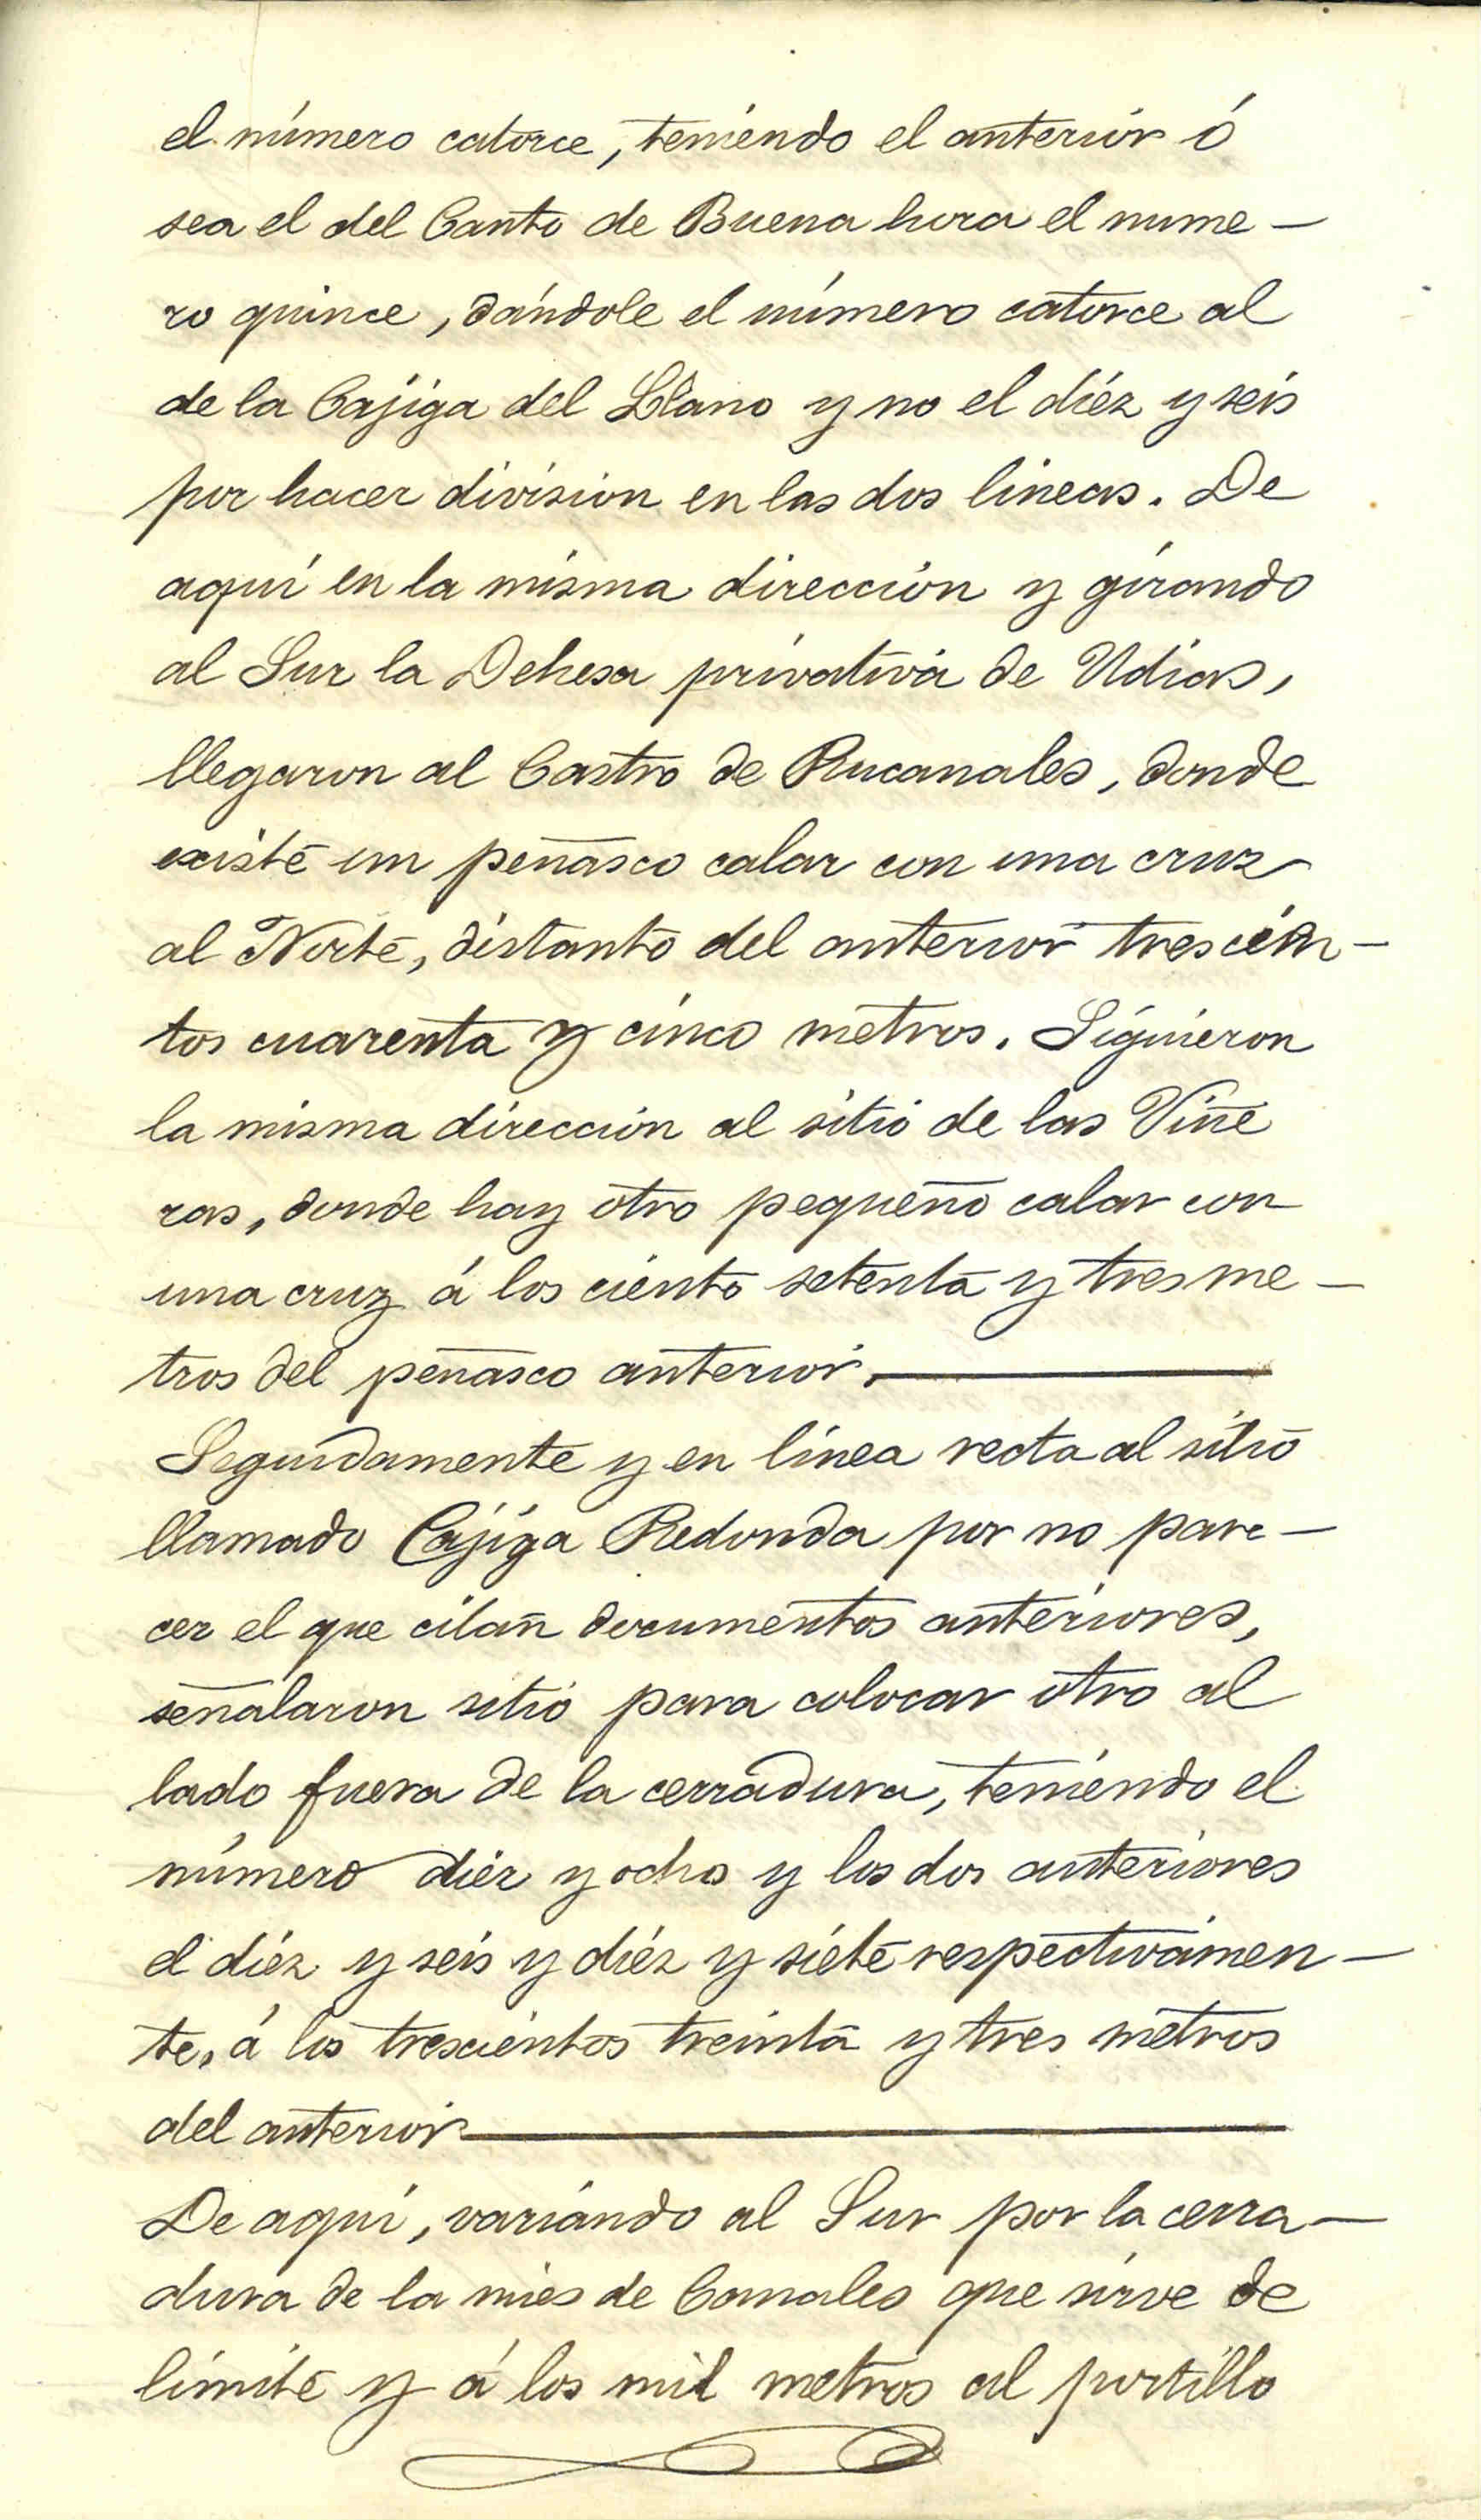 el número catorce, teniendo el anterior ó
sea el del Canto de Buena hora el nume-
ro quince, dándole el número catorce al
de la Cajiga del Llano y no el diéz y seis
por hacer división en las dos lineas. De
aquí en la misma dirección y girando
al Sur la Dehesa privativa de Udias,
llegaron al Castro de Rucanales, donde
existe un peñasco calar con una cruz
al Norte, distanto del anterior trescien-
tos cuarenta y cinco metros. Siguieron
la misma dirección al sitio de las Viñe
ras, donde hay otro pequeño calar con
una cruz á los ciento setenta y tres me-
tros del peñasco anterior.
Seguidamente y en línea recta al sitio
llamado Cajiga Redonda por no pare-
cer el que citan documentos anteriores,
señalaron sitio para colocar otro al
lado fuera de la cerradura, teniendo el
número diéz y ocho y los dos anteriores
el diéz y seis y diéz y siete respectivamen-
te, á los trescientos treinta y tres metros
del anterior
De aquí, variando al Sur por la cerra-
dura de la mies de Canales que sirve de
límite y á los mil metros al portillo